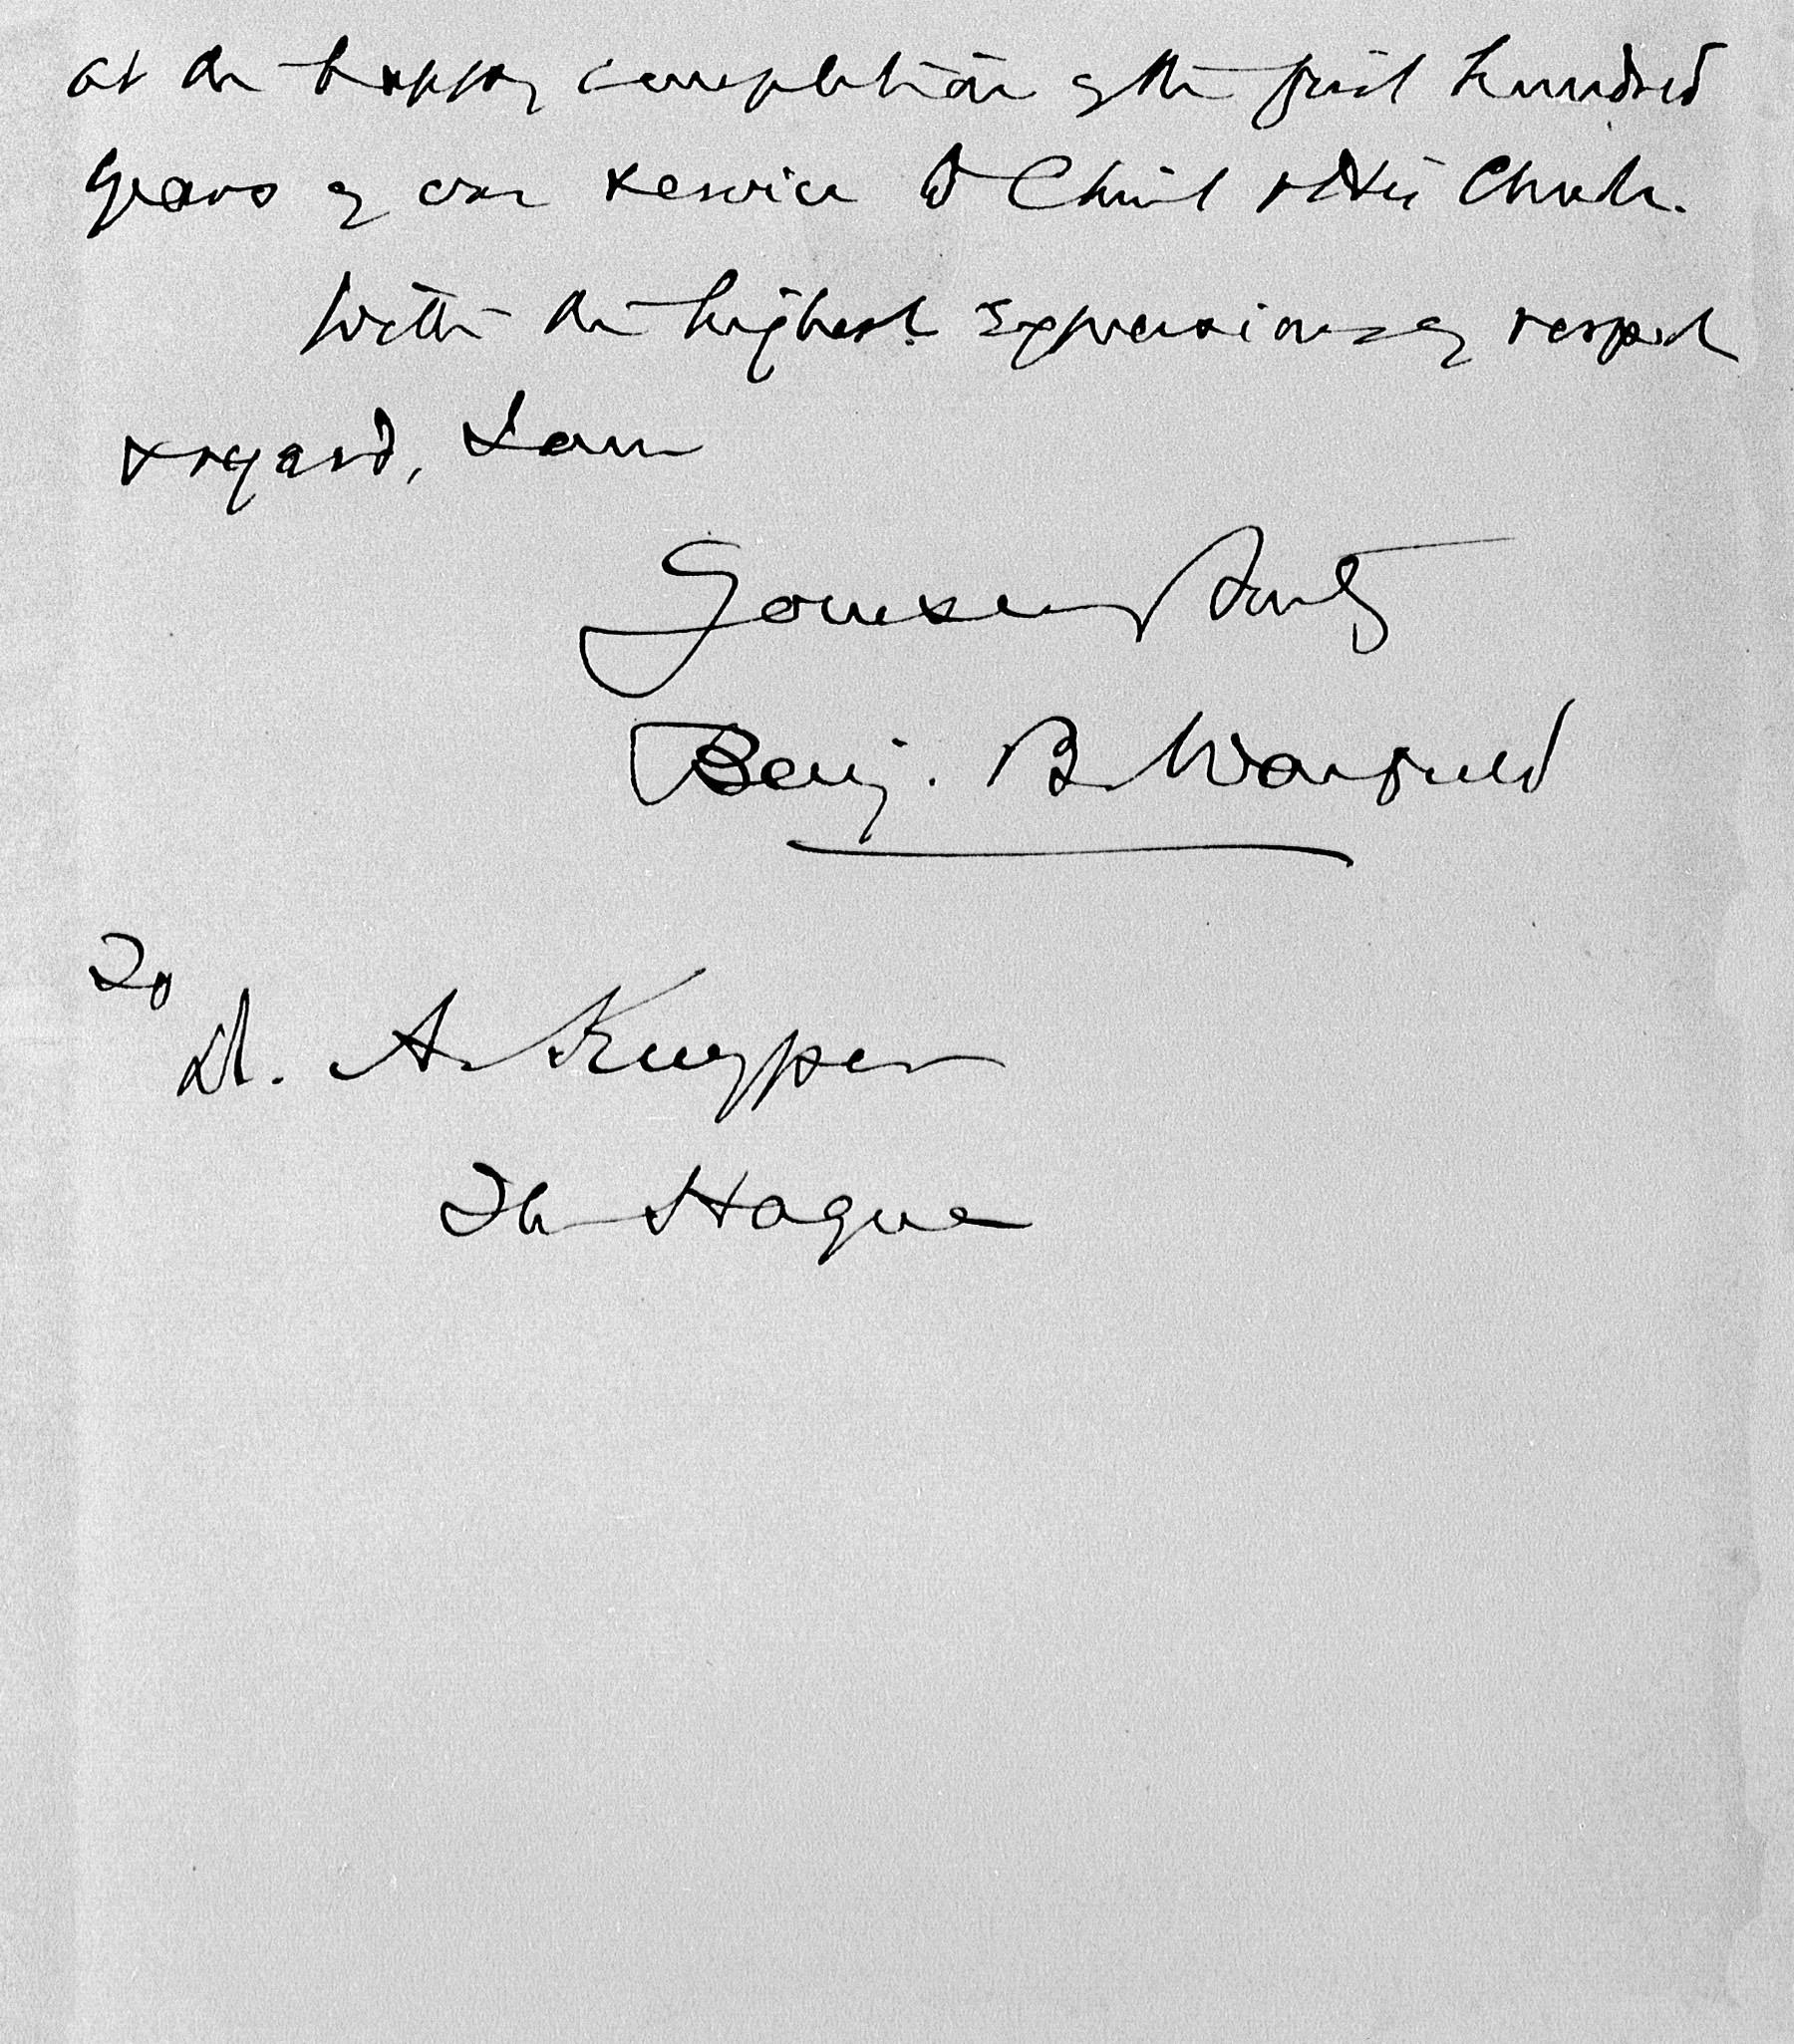 at the happy completion of the first hundred
years of our service to Christ & His Church.
With the highest expressions of respect
& regard, I am
Yours very truly
Benj. B. Warfield
To
Dr. A. Kuyper
The Hague